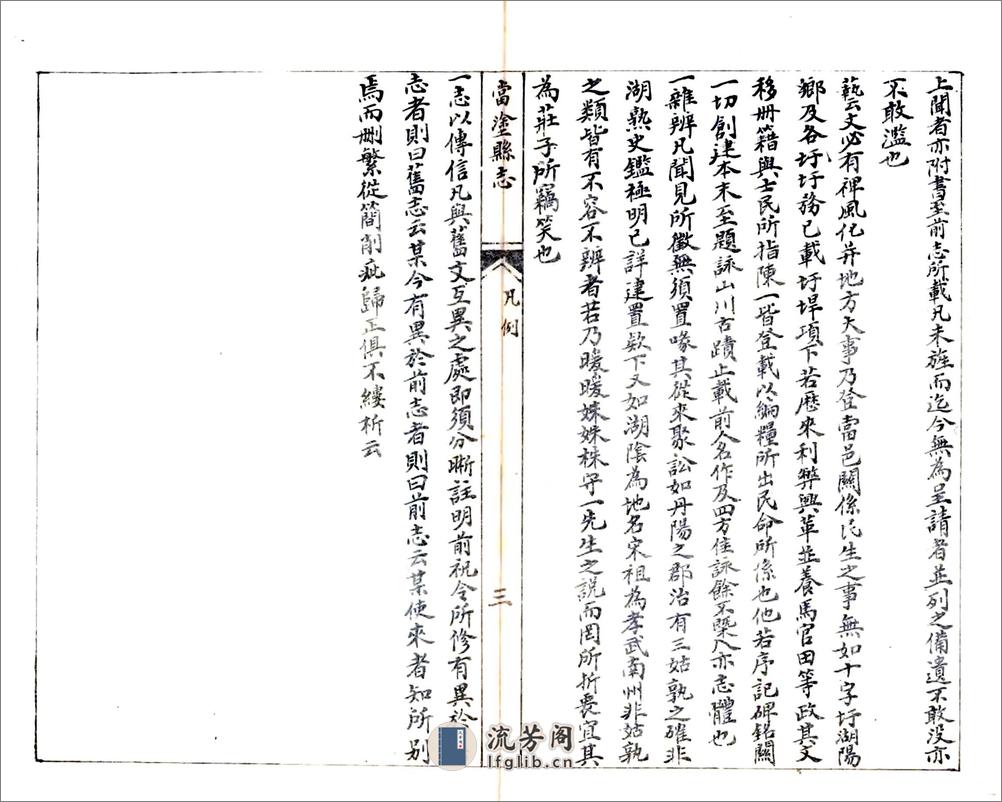 上聞者亦附書至前志所載凡未旌而迄今無為呈請者並列之備遺不敢没亦
不敢濫也
藝云文必有裨風化并地方大事乃登當邑關係民生之事無如十字圩湖陽
鄉及各圩圩務已載圩垾項下若歷來利弊興革並養馬官田等政其文
移册籍與士民所指陳一皆登載以納糧所出民命所係也他若序記碑銘關
一切創建本末至題詠山川古蹟止載前人名作及四方佳詠餘不槩入亦志體也
一雜辨凡聞見所徵無須置喙其從來聚訟如丹陽之郡治有三姑孰之確非
湖熟史鑑極明已詳建置欵下又如湖陰為地名宋祖為孝武南州非姑孰
之類皆有不容不辨者若乃暖暖姝姝株守一先生之説而罔所折衷宜其
為莊子所竊笑也
當塗縣志
凡例
三
一志以傳信凡與舊文互異之處即須分晰註明前祝令所修有異於
志者則曰舊志云某今有異於前志者則曰前志云某使來者知所別
焉而删繁從簡削疵歸正俱不縷析云
流芳阁
lfglib.cn